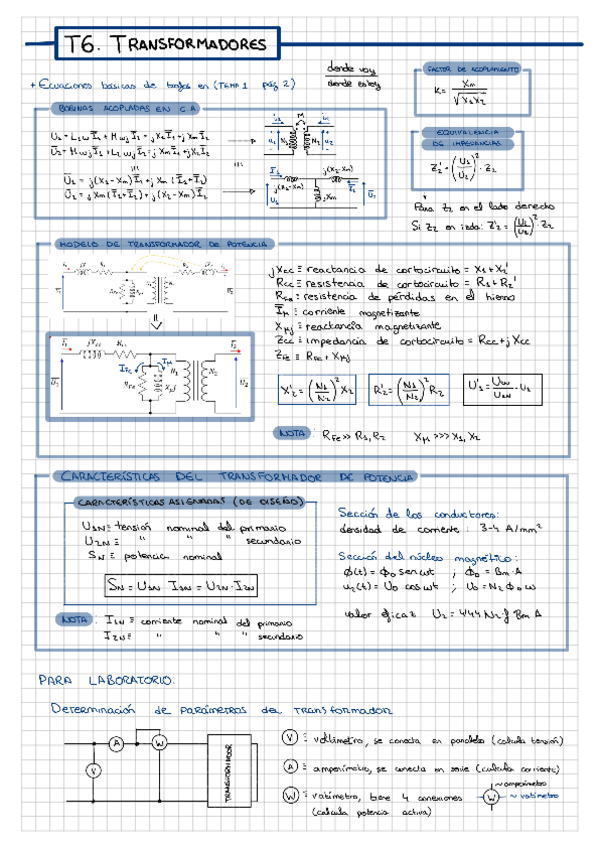 T6. TRANSFORMADORES
donde voy
donde estoy
+ Ecuaciones básicas de trafos en (TEMA 1 pág 2)
FACTOR DE ACOPLAMIENTO
K = Xm / √X1X2
BOBINAS ACOPLADAS EN C.A
EQUIVALENCIA
DE IMPEDANCIAS
Z2' = (U1/U2)² · Z2
Para Z2 en el lado derecho
MODELO DE TRANSFORMADOR DE POTENCIA
jXcc ≡ reactancia de cortocircuito = X1 + X2'
Rcc ≡ resistencia de cortocircuito = R1 + R2'
RFe ≡ resistencia de pérdidas en el hierro
Iμ ≡ corriente magnetizante
Xμj ≡ reactancia magnetizante
Zcc ≡ impedancia de cortocircuito = Rcc + j Xcc
X2' = (N1/N2)² X2
R2' = (N1/N2)² R2
NOTA : RFe >> R1, R2 Xμ >>> X1, X2
CARACTERÍSTICAS DEL TRANSFORMADOR DE POTENCIA
CARACTERÍSTICAS ASIGNADAS (DE DISEÑO)
U1N ≡ tensión nominal del primario
U2N ≡ " " " secundario
SN ≡ potencia nominal
SN = U1N · I1N = U2N · I2N
NOTA : I1N ≡ corriente nominal del primario
I2N ≡ " " " secundario
Sección de los conductores:
densidad de corriente : 3-4 A/mm²
Sección del núcleo magnético:
ϕ(t) = ϕ0 sen ωt ; ϕ0 = Bm · A
u2(t) = U0 cos ωt ; U0 = N2 ϕ0 ω
valor eficaz U2 = 4'44 N2 · f Bm A
PARA LABORATORIO:
Determinación de parámetros del transformador
A
W
V
TRANSFORMADOR
V ≡ voltímetro, se conecta en paralelo (calcula tensión)
A ≡ amperímetro, se conecta en serie (calcula corriente)
W ≡ vatímetro, tiene 4 conexiones
(calcula potencia activa)
~ amperímetro
W ~ voltímetro